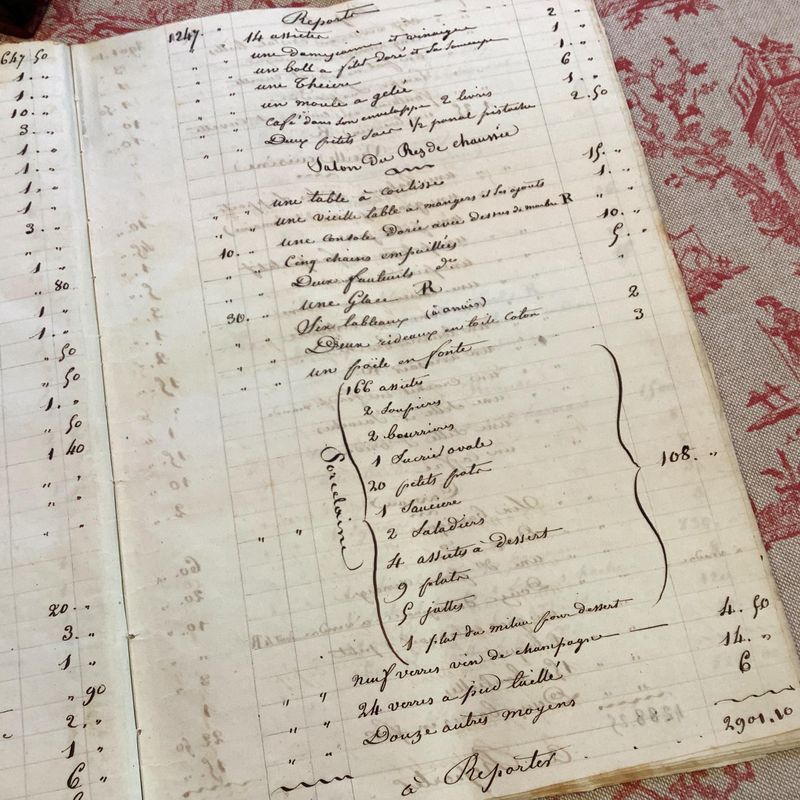 647. 50
1. "
1. "
10. "
3. "
1. "
1. "
1. "
1. "
3. "
"
1 "
" 80
1 "
1. "
" 50
" 50
1. "
" 50
1 40
" "
" "
20. "
3. "
1 "
" 90
2. "
1 "
6 "
Reporte
1247. " 14 assiettes 2 "
" " une damejeanne et vinaigre 1 "
" " un boll a filet doré et sa soucoupe 1. "
" " une Theiere 6 "
" " un moule a gelée 1. "
" " Café dans son enveloppe 2 livres 2. 50
" " Deux petits sacs 1/2 panal pistache
Salon Du Rez de chaussée
" " une table à coulisse 15. "
" " une vieille table a mangers et les ajouts 1. "
10. " une console Dorée avec dessus de marbre R " "
" " Cinq chaises empaillées 10. "
" " Deux fauteuils do 5. "
30. " une Glace R
" " Six tableaux (à anaïs)
" " Deux rideaux en toile Coton 2
" " un poële en fonte 3
Porcelaine
166 assiettes
2 Soupiers
2 beurriers
1 Sucrié ovale
20 petits pots
1 Sauciere
" " 2 Saladiers 108. "
4 assietes à dessert
9 plats
5 jattes
1 plat du milieu pour dessert
" " neuf verres vin de champagne 4. 50
" " 24 verres a pied taillé 14. "
" " Douze autres moyens 6
à Reporter 2901. 10